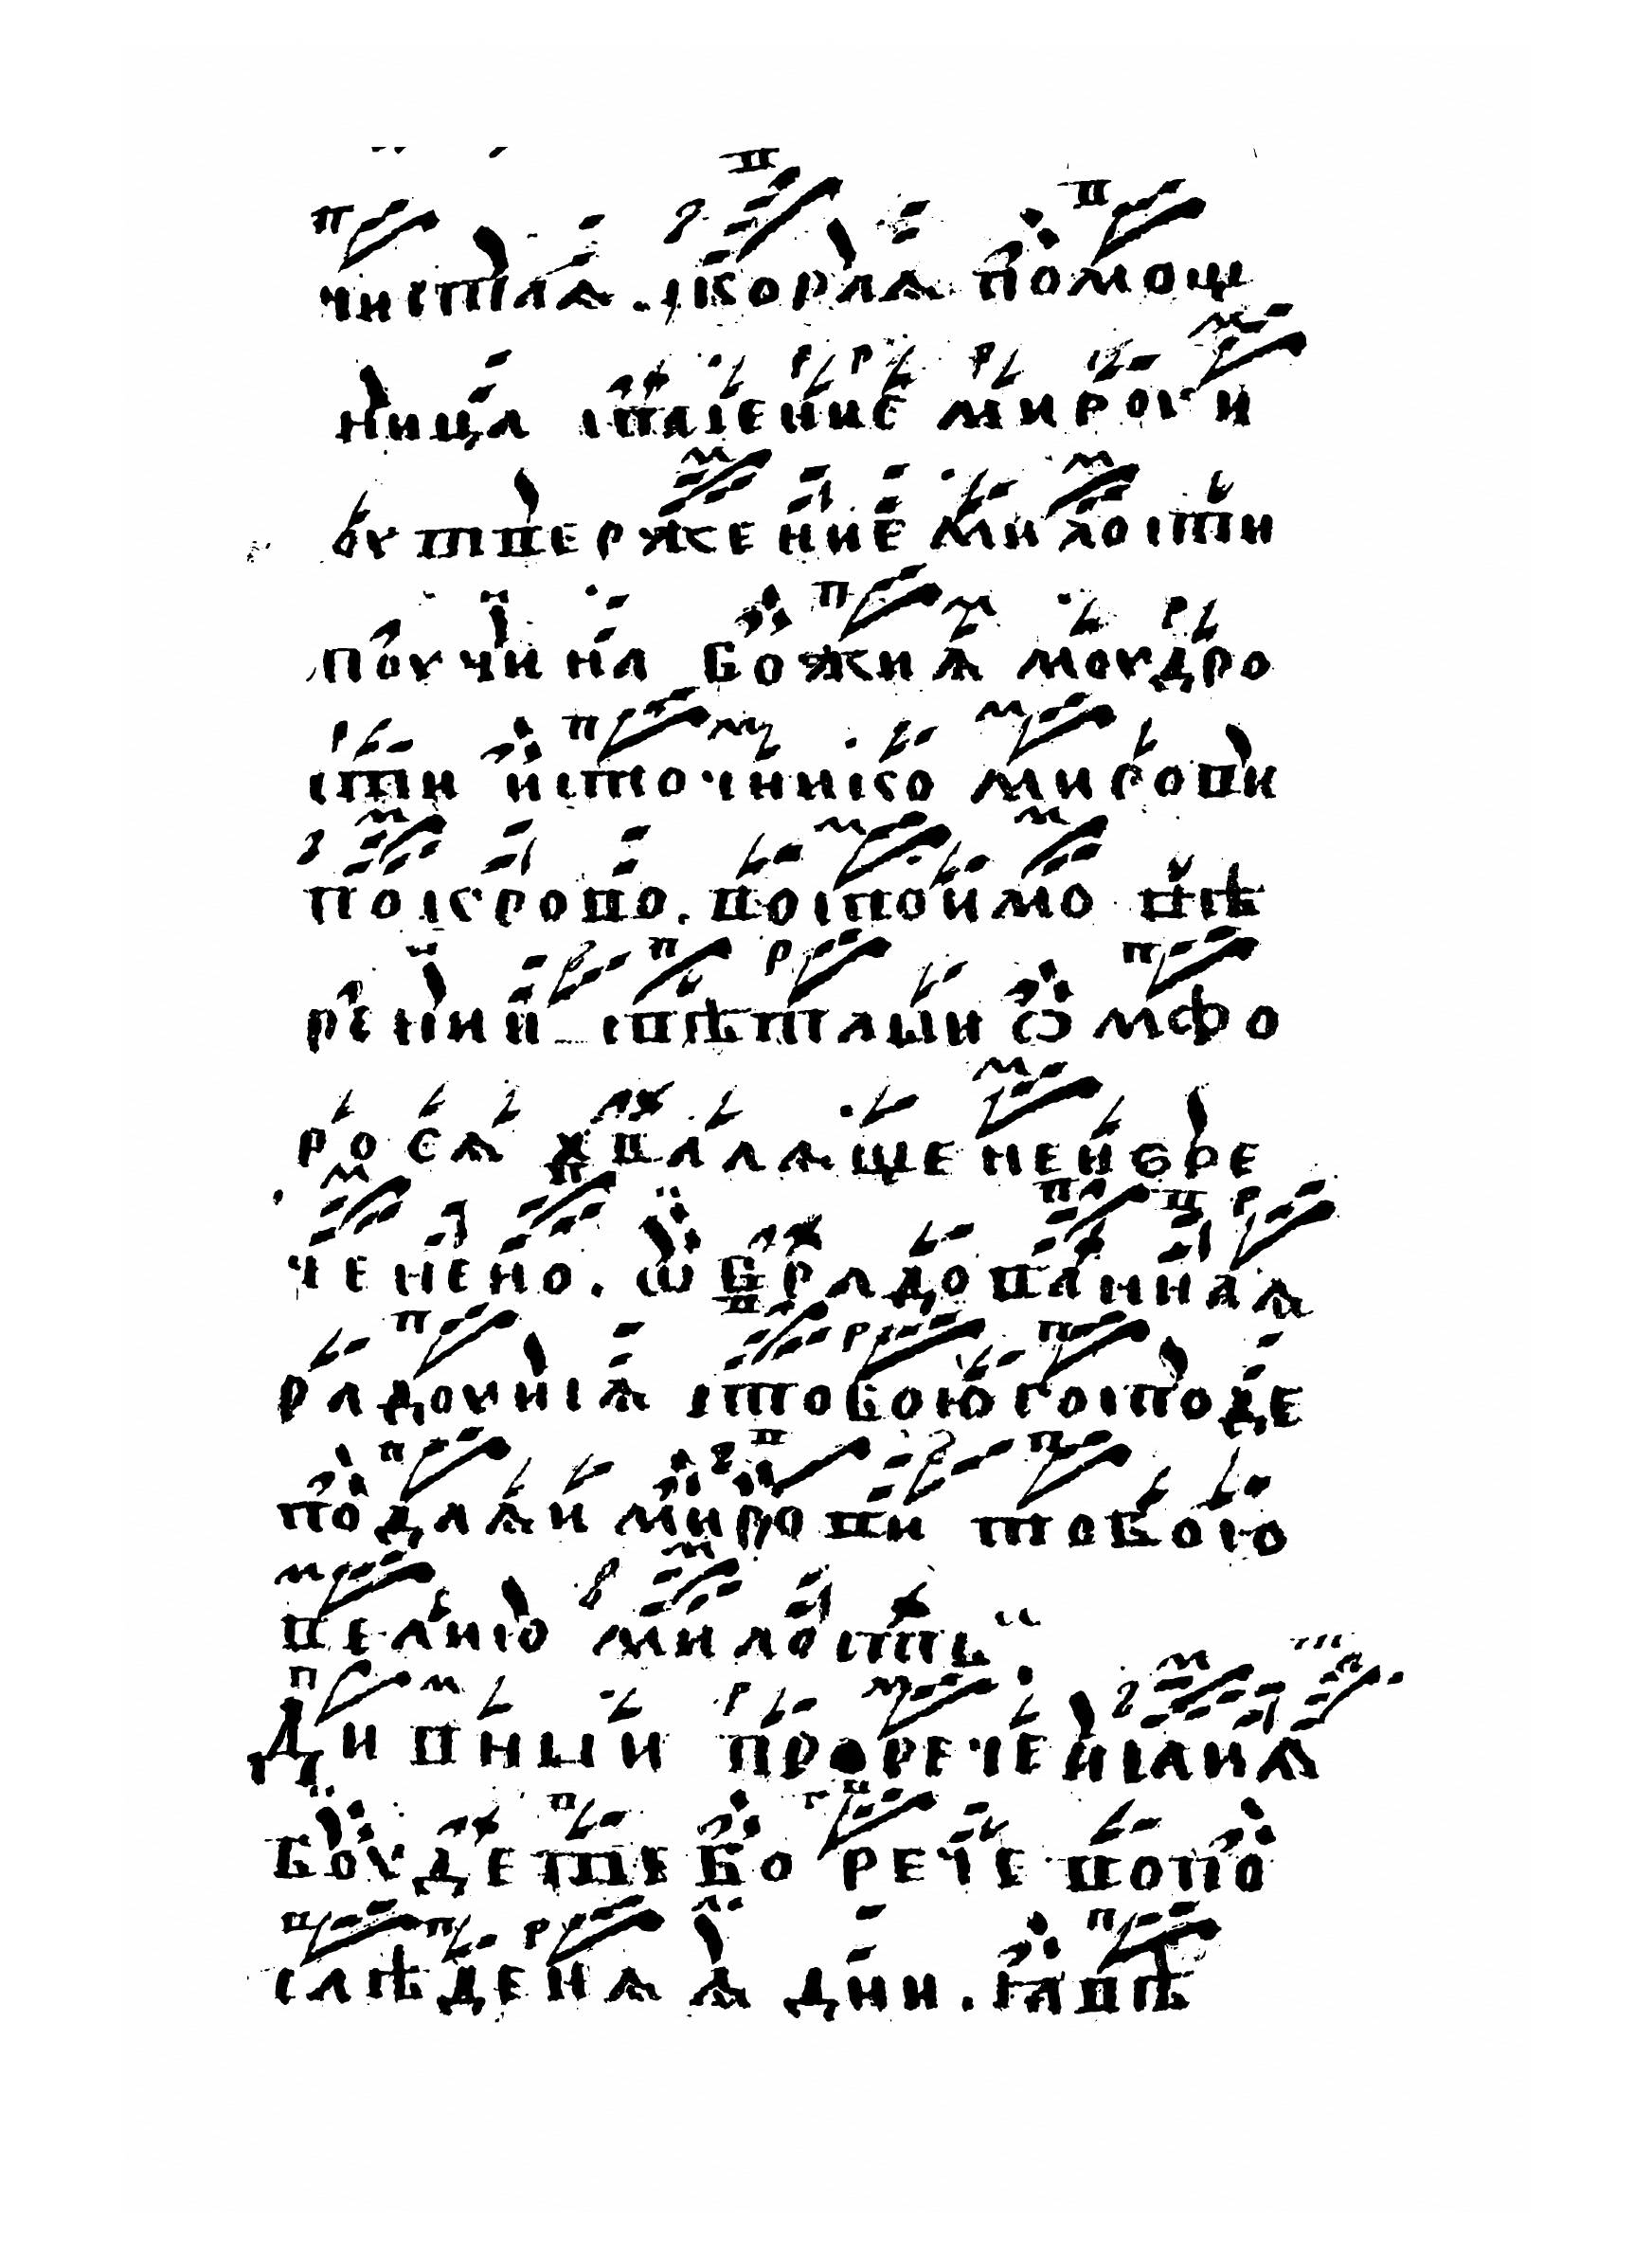 чистаѧ . скораѧ помощ
ница спасение мироу и
оутвержение милости
поучина божиѧ моудро
сти источнико мирови
покрово . воспоимо вѣ
рении свѣтлыи ѡмфо
росѧ хвалѧще неизре
ченено . ѡбрадованнаѧ
радоуисѧ стобою господе
подлѧи мирови тобою
велию милость
Дивныи проречениѧ
боудете бо рече вопо
слѣденѧѧ дни . ꙗвѣ